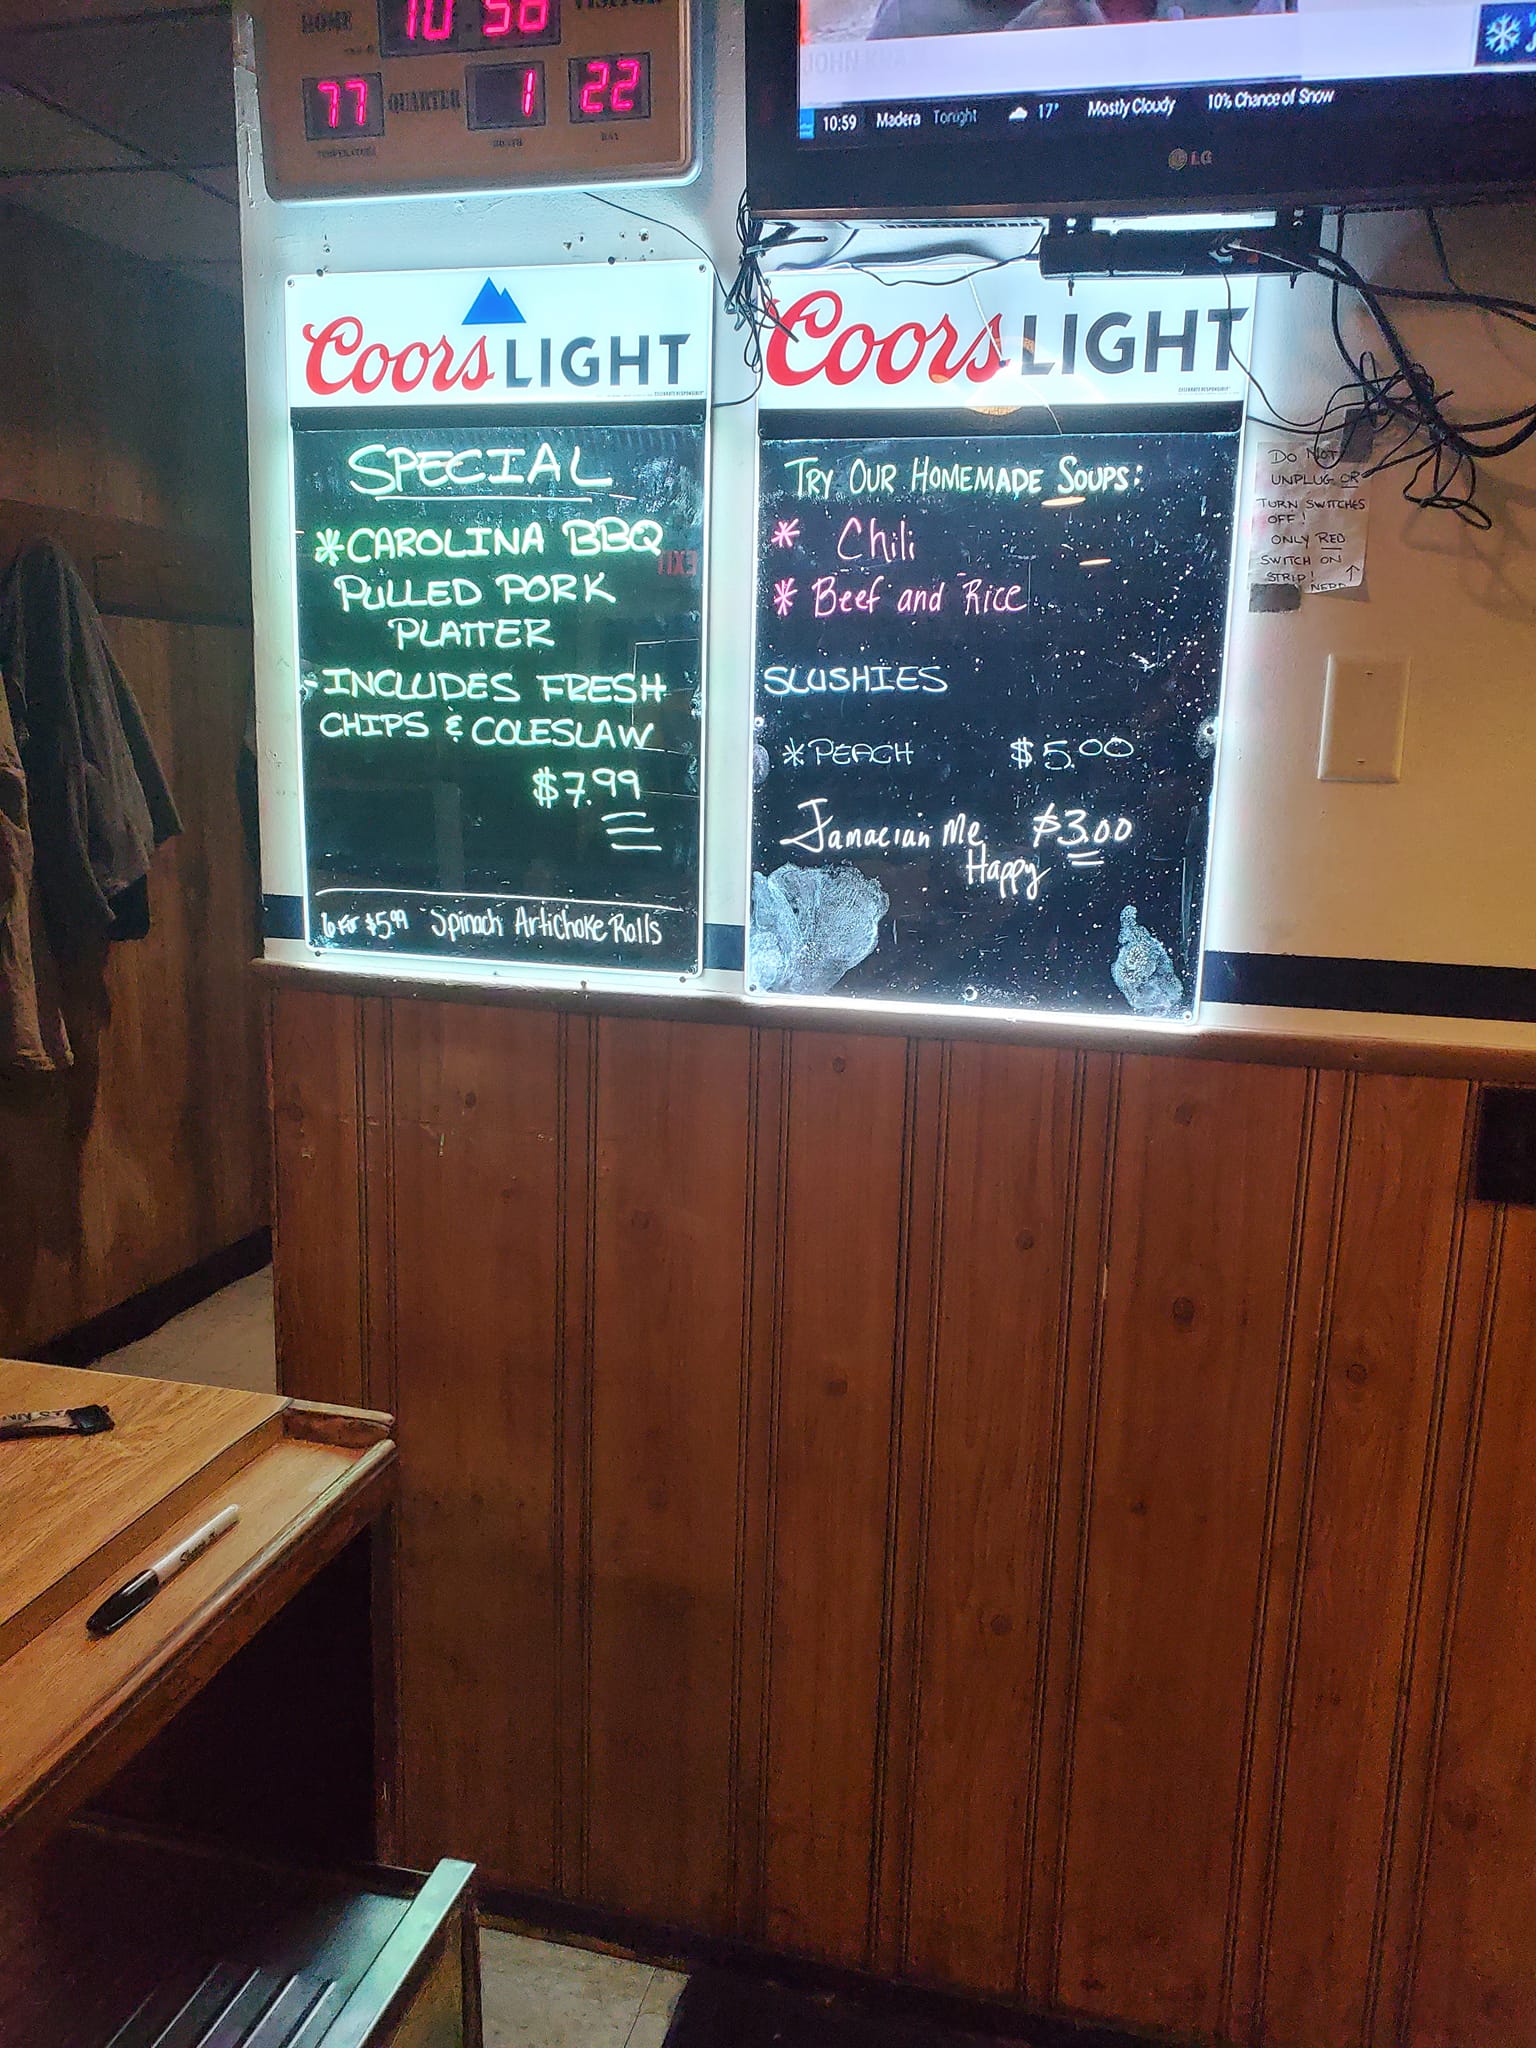 HOME
10:58
77
QUARTER
1
22
TEMPERATURE
MONTH
DAY
10:59 Madera Tonight 17° Mostly Cloudy 10% Chance of Snow
LG
Coors LIGHT
CELEBRATE RESPONSIBLY
SPECIAL
*CAROLINA BBQ
PULLED PORK
PLATTER
-INCLUDES FRESH
CHIPS & COLESLAW
$7.99
6 For $5.99 Spinach Artichoke Rolls
Coors LIGHT
CELEBRATE RESPONSIBLY
TRY OUR HOMEMADE SOUPS:
* Chili
* Beef and Rice
SLUSHIES
*PEACH $5.00
Jamacian Me $3.00
Happy
EXIT
DO NOT
UNPLUG OR
TURN SWITCHES
OFF!
ONLY RED
SWITCH ON
STRIP!
Sharpie